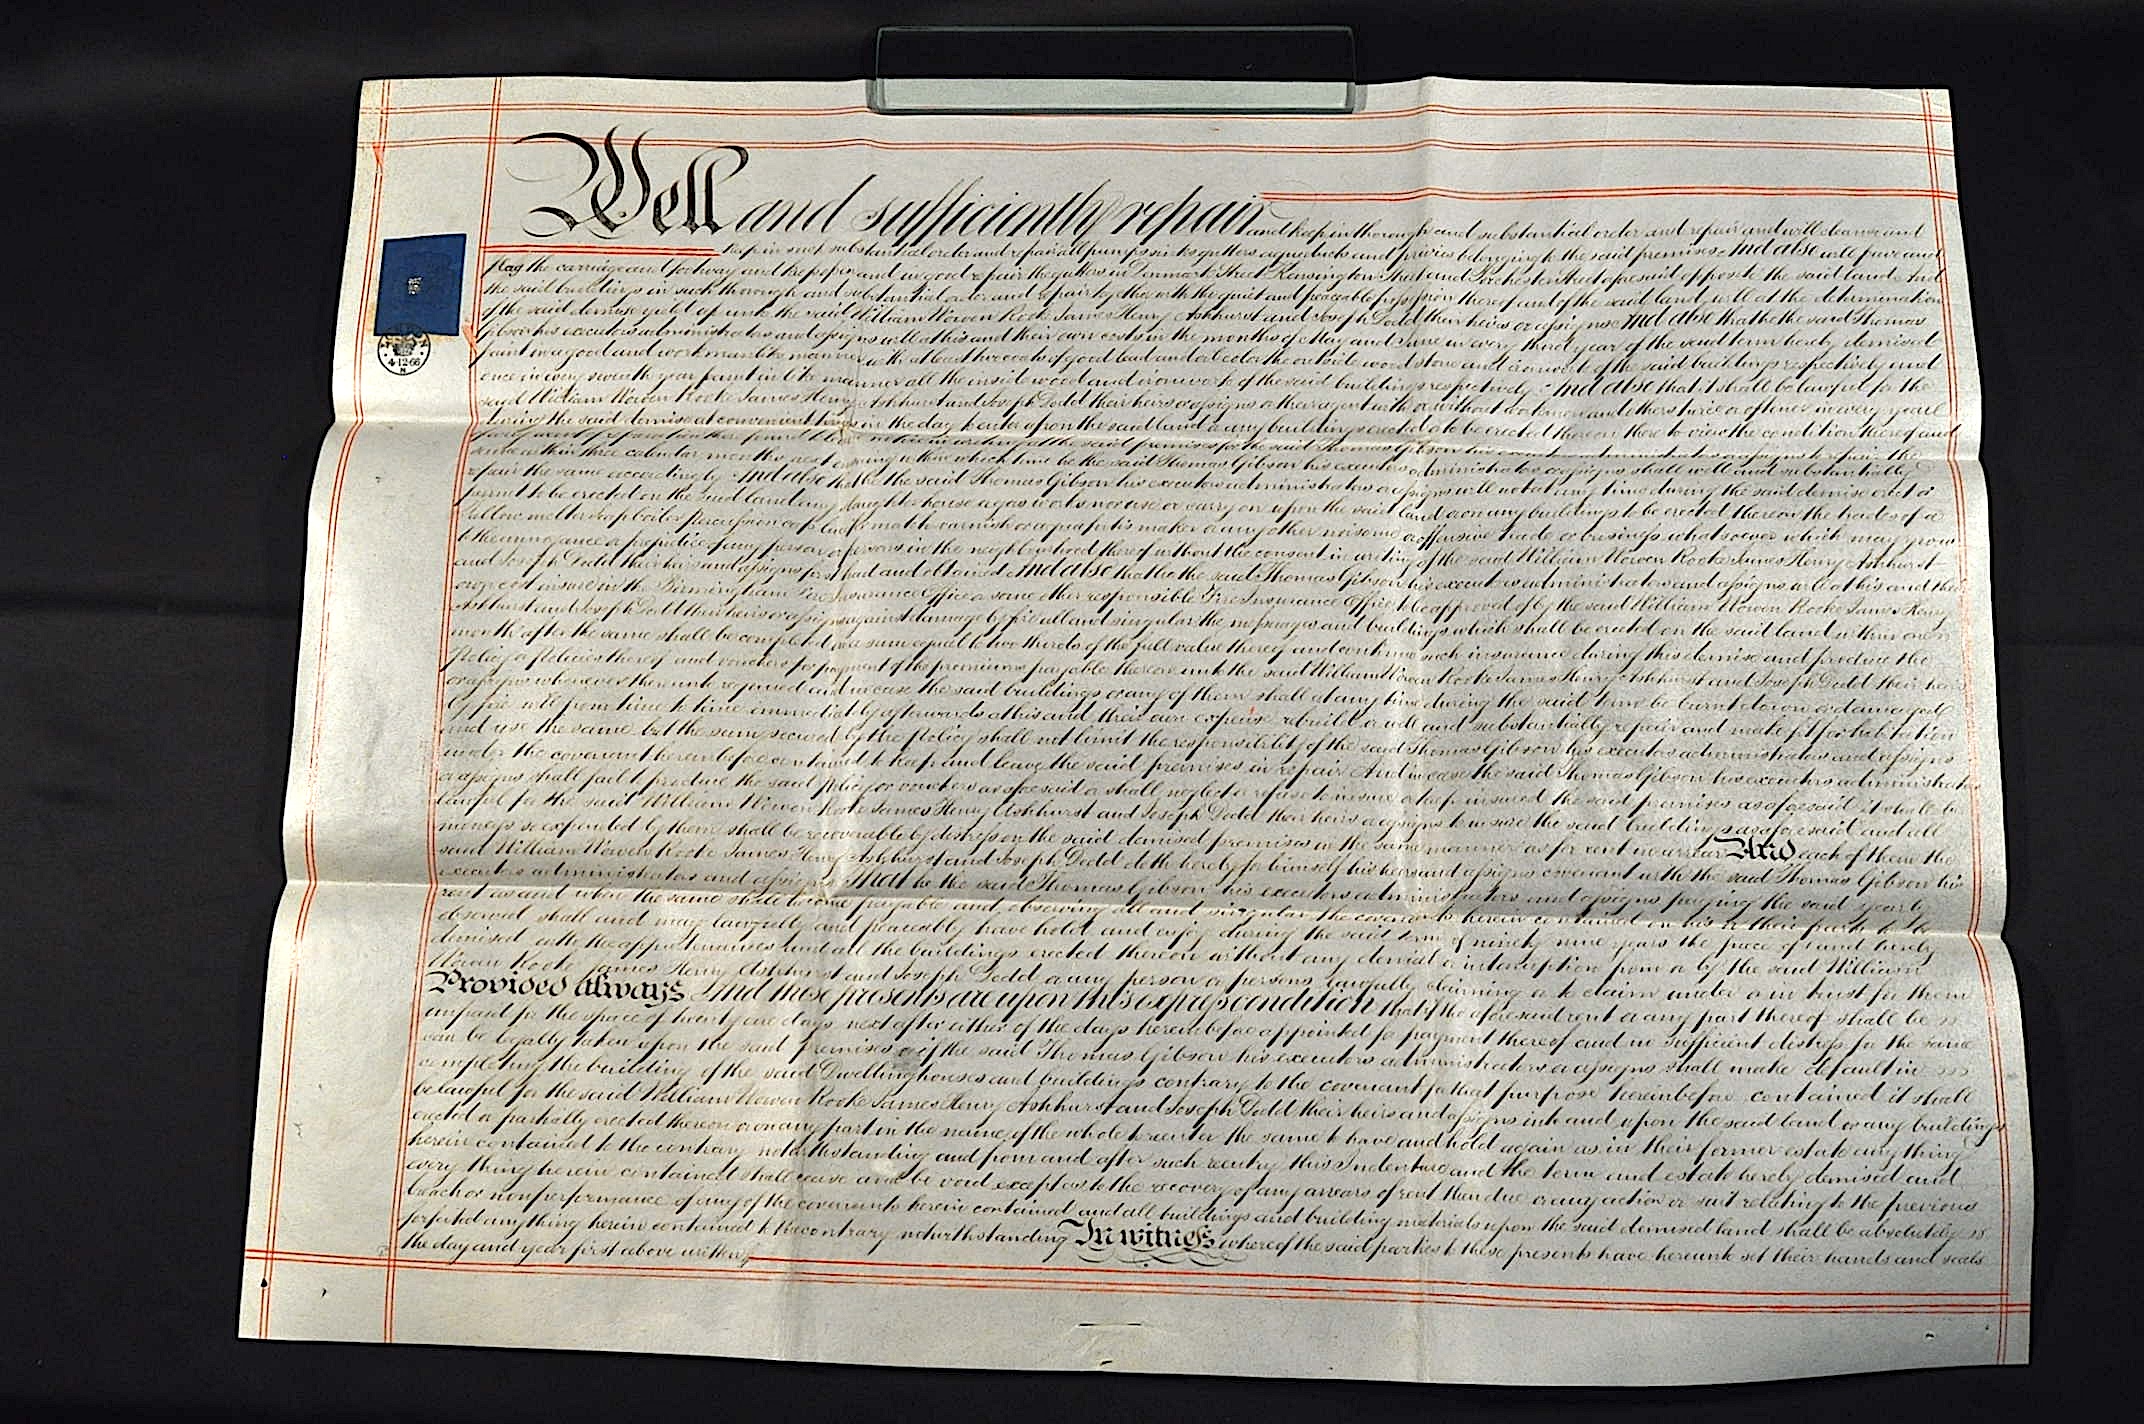 Well and sufficiently repair and keep in thorough and substantial order and repair and will cleanse and
keep in such substantial order and repair all pumps sinks gutters aqueducts and privies belonging to the said premises And also will pave and
flag the carriage and footway and keep open and in good repair the gutters in Denmark Street Kensington Street and Porchester Street aforesaid opposite the said land And
the said buildings in such thorough and substantial order and repair together with the quiet and peaceable possession thereof and of the said land will at the determination
of the said demise yield up unto the said William Wowen Rooke James Henry Ashhurst and Joseph Dodd their heirs or assigns And also that he the said Thomas
Gibson his executors administrators and assigns will at his and their own costs in the months of May and June in every third year of the said term hereby demised
paint in a good and workmanlike manner with at least two coats of good lead and oil color the outside wood stone and ironwork of the said buildings respectively and
once in every seventh year paint in like manner all the inside wood and ironwork of the said buildings respectively And also that it shall be lawful for the
said William Wowen Rooke James Henry Ashhurst and Joseph Dodd their heirs or assigns or their agent with or without workmen and others twice or oftener in every year
during the said demise at convenient times in the day to enter upon the said land and any buildings erected or to be erected thereon there to view the condition thereof and
for want of reparation there found to leave notice in writing at the said premises for the said Thomas Gibson his executors administrators or assigns to repair the
same within three calendar months next ensuing within which time he the said Thomas Gibson his executors administrators or assigns shall well and substantially
repair the same accordingly And also that he the said Thomas Gibson his executors administrators or assigns will not at any time during the said demise erect or
permit to be erected on the said land any slaughterhouse or gas works nor use or carry on upon the said land or on any buildings to be erected thereon the trades of a
tallow melter soap boiler percussion cap lucifer match varnish or aquafortis maker or any other noisome or offensive trade or business whatsoever which may grow
to the annoyance or prejudice of any person or persons in the neighbourhood thereof without the consent in writing of the said William Wowen Rooke James Henry Ashhurst
and Joseph Dodd their heirs and assigns first had and obtained And also that he the said Thomas Gibson his executors administrators and assigns will at his and their
own cost insure in the Birmingham Fire Insurance Office or some other responsible Fire Insurance Office to be approved of by the said William Wowen Rooke James Henry
Ashhurst and Joseph Dodd their heirs or assigns against damage by fire all and singular the messuages and buildings which shall be erected on the said land within one
month after the same shall be completed in a sum equal to two thirds of the full value thereof and continue such insurance during this demise and produce the
Policy or Policies thereof and vouchers for payment of the premiums payable thereon unto the said William Wowen Rooke James Henry Ashhurst and Joseph Dodd their heirs
or assigns whenever thereunto required and in case the said buildings or any of them shall at any time during the said term be burnt down or damaged
by fire will from time to time immediately afterwards at his and their own expense rebuild or well and substantially repair and make fit for habitation
and use the same but the sum secured by the Policy shall not limit the responsibility of the said Thomas Gibson his executors administrators and assigns
under the covenant hereinbefore contained to keep and leave the said premises in repair And in case the said Thomas Gibson his executors administrators
or assigns shall fail to produce the said Policy or vouchers as aforesaid or shall neglect or refuse to insure or keep insured the said premises as aforesaid it shall be
lawful for the said William Wowen Rooke James Henry Ashhurst and Joseph Dodd their heirs or assigns to insure the said buildings as aforesaid and all
moneys so expended by them shall be recoverable by distress on the said demised premises in the same manner as for rent in arrear And each of them the
said William Wowen Rooke James Henry Ashhurst and Joseph Dodd doth hereby for himself his heirs and assigns covenant with the said Thomas Gibson his
executors administrators and assigns That he the said Thomas Gibson his executors administrators and assigns paying the said yearly
rent as and when the same shall become payable and observing all and singular the covenants herein contained on his or their parts to be
observed shall and may lawfully and peaceably have hold and enjoy during the said term of ninety nine years the piece of land hereby
demised with the appurtenances and all the buildings erected thereon without any denial or interruption from or by the said William
Wowen Rooke James Henry Ashhurst and Joseph Dodd or any person or persons lawfully claiming or to claim under or in trust for them
Provided Always And these presents are upon this express condition that if the aforesaid rent or any part thereof shall be
unpaid for the space of twenty one days next after either of the days hereinbefore appointed for payment thereof and no sufficient distress for the same
can be legally taken upon the said premises or if the said Thomas Gibson his executors administrators or assigns shall make default in
completing the building of the said Dwellinghouses and buildings contrary to the covenant for that purpose hereinbefore contained it shall
be lawful for the said William Wowen Rooke James Henry Ashhurst and Joseph Dodd their heirs and assigns into and upon the said land or any buildings
erected or partially erected thereon or on any part in the name of the whole to reenter the same to have and hold again as in their former estate anything
herein contained to the contrary notwithstanding and from and after such reentry this Indenture and the term and estate hereby demised and
every thing herein contained shall cease and be void except as to the recovery of any arrears of rent then due or any action or suit relating to the previous
breach or nonperformance of any of the covenants herein contained and all buildings and building materials upon the said demised land shall be absolutely
forfeited anything herein contained to the contrary notwithstanding In witness whereof the said parties to these presents have hereunto set their hands and seals
the day and year first above written
4·12·66